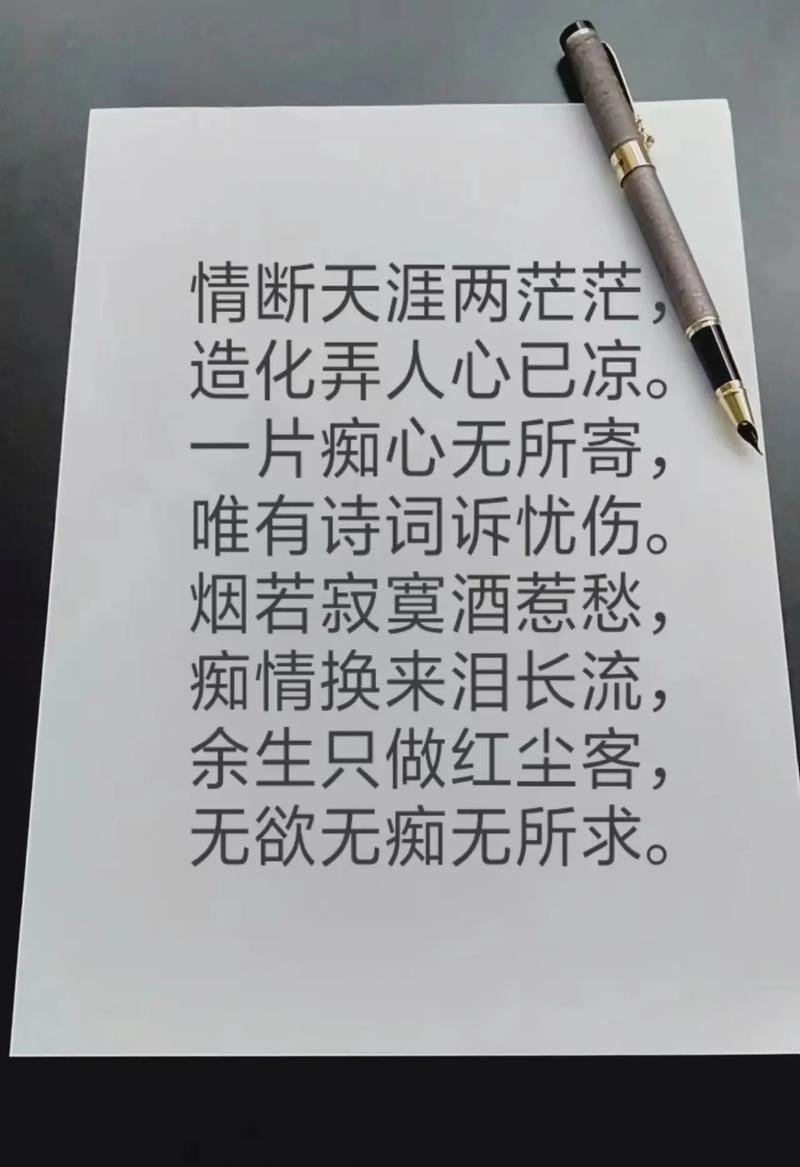 情断天涯两茫茫，
造化弄人心已凉。
一片痴心无所寄，
唯有诗词诉忧伤。
烟若寂寞酒惹愁，
痴情换来泪长流，
余生只做红尘客，
无欲无痴无所求。